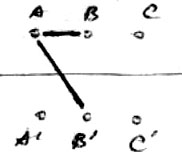 A B C
A' B' C'